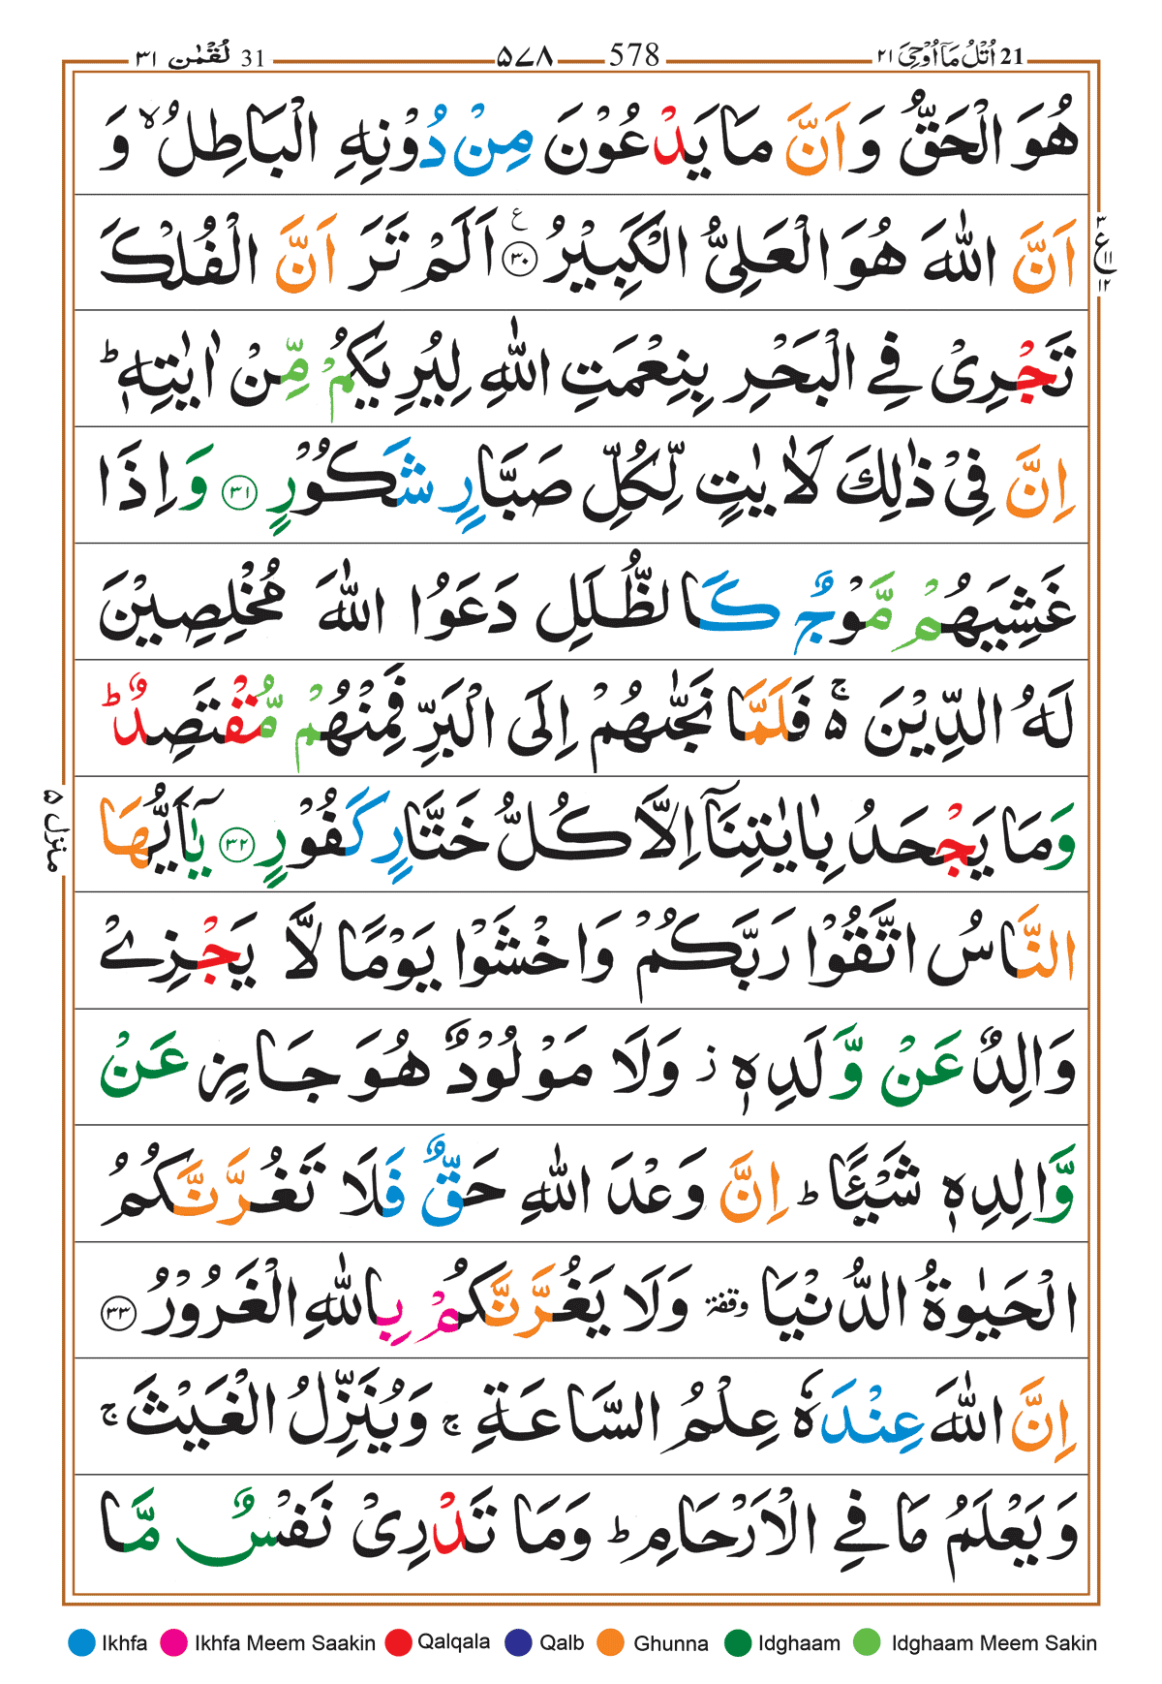 لُقْمٰن ٣١ 31 ۵۷۸ 578 اُتْلُ مَاۤ اُوْحِیَ ٢١ 21
هُوَ الْحَقُّ وَ اَنَّ مَا یَدْعُوْنَ مِنْ دُوْنِهِ الْبَاطِلُ ۙ وَ
اَنَّ اللّٰهَ هُوَ الْعَلِیُّ الْكَبِیْرُ ۧ ﴿۳۰﴾ اَلَمْ تَرَ اَنَّ الْفُلْكَ
تَجْرِیْ فِی الْبَحْرِ بِنِعْمَتِ اللّٰهِ لِیُرِیَكُمْ مِّنْ اٰیٰتِهٖ ؕ
اِنَّ فِیْ ذٰلِكَ لَاٰیٰتٍ لِّكُلِّ صَبَّارٍ شَكُوْرٍ ﴿۳۱﴾ وَ اِذَا
غَشِیَهُمْ مَّوْجٌ كَالظُّلَلِ دَعَوُا اللّٰهَ مُخْلِصِیْنَ
لَهُ الدِّیْنَ ۬ۚ فَلَمَّا نَجّٰىهُمْ اِلَی الْبَرِّ فَمِنْهُمْ مُّقْتَصِدٌ ؕ
وَ مَا یَجْحَدُ بِاٰیٰتِنَاۤ اِلَّا كُلُّ خَتَّارٍ كَفُوْرٍ ﴿۳۲﴾ یٰۤاَیُّهَا
النَّاسُ اتَّقُوْا رَبَّكُمْ وَ اخْشَوْا یَوْمًا لَّا یَجْزِیْ
وَالِدٌ عَنْ وَّلَدِهٖ ؗ وَ لَا مَوْلُوْدٌ هُوَ جَازٍ عَنْ
وَّالِدِهٖ شَیْـًٔا ؕ اِنَّ وَعْدَ اللّٰهِ حَقٌّ فَلَا تَغُرَّنَّكُمُ
الْحَیٰوةُ الدُّنْیَا وقفة وَ لَا یَغُرَّنَّكُمْ بِاللّٰهِ الْغَرُوْرُ ﴿۳۳﴾
اِنَّ اللّٰهَ عِنْدَهٗ عِلْمُ السَّاعَةِ ۚ وَ یُنَزِّلُ الْغَیْثَ ۚ
وَ یَعْلَمُ مَا فِی الْاَرْحَامِ ؕ وَ مَا تَدْرِیْ نَفْسٌ مَّا
٣ ع ١١ ١٢
منزل ۵
Ikhfa Ikhfa Meem Saakin Qalqala Qalb Ghunna Idghaam Idghaam Meem Sakin